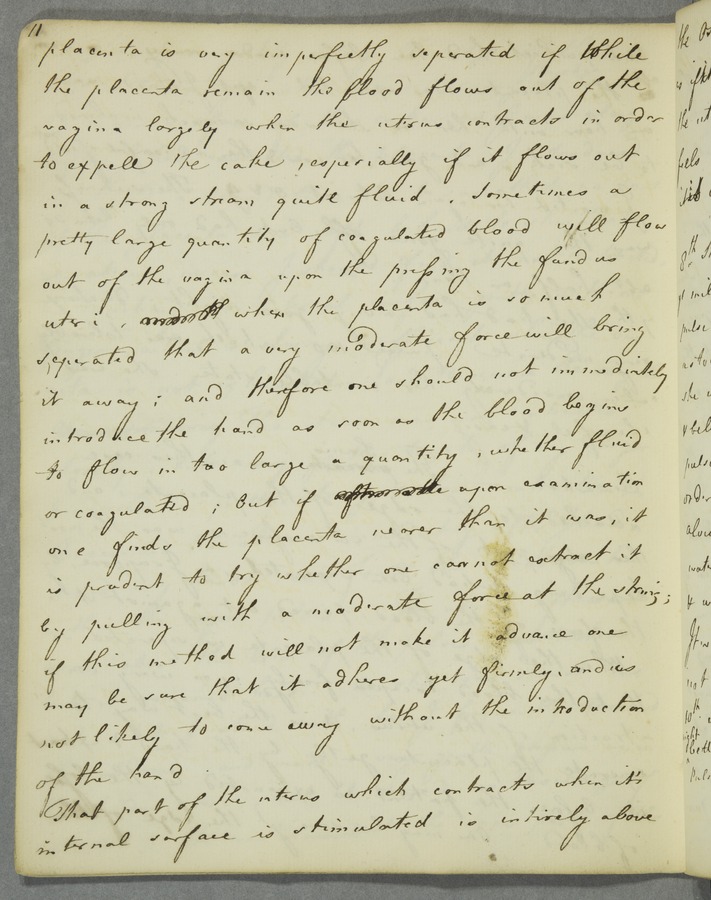 11
placenta is very imperfectly seperated if While
the placenta remain the blood flows out of the
vagina largely when the uterus contracts in order
to expell the cake, especially if it flows out
in a strong stream quite fluid. Sometimes a
pretty large quantity of coagulated blood will flow
out of the vagina upon the pressing the fundus
uteri, when the placenta is so much
seperated that a very moderate force will bring
it away; and therefore one should not immediately
introduce the hand as soon as the blood begins
to flow in too large a quantity, whether fluid
or coagulated; but if upon examination
one finds the placenta nearer than it was, it
is prudent to try whether one cannot extract it
by pulling with a moderate force at the string;
if this method will not make it advance one
may be sure that it adheres yet firmly, and is
not likely to come away without the introduction
of the hand
That part of the uterus which contracts when it's
internal surface is stimulated is intirely above